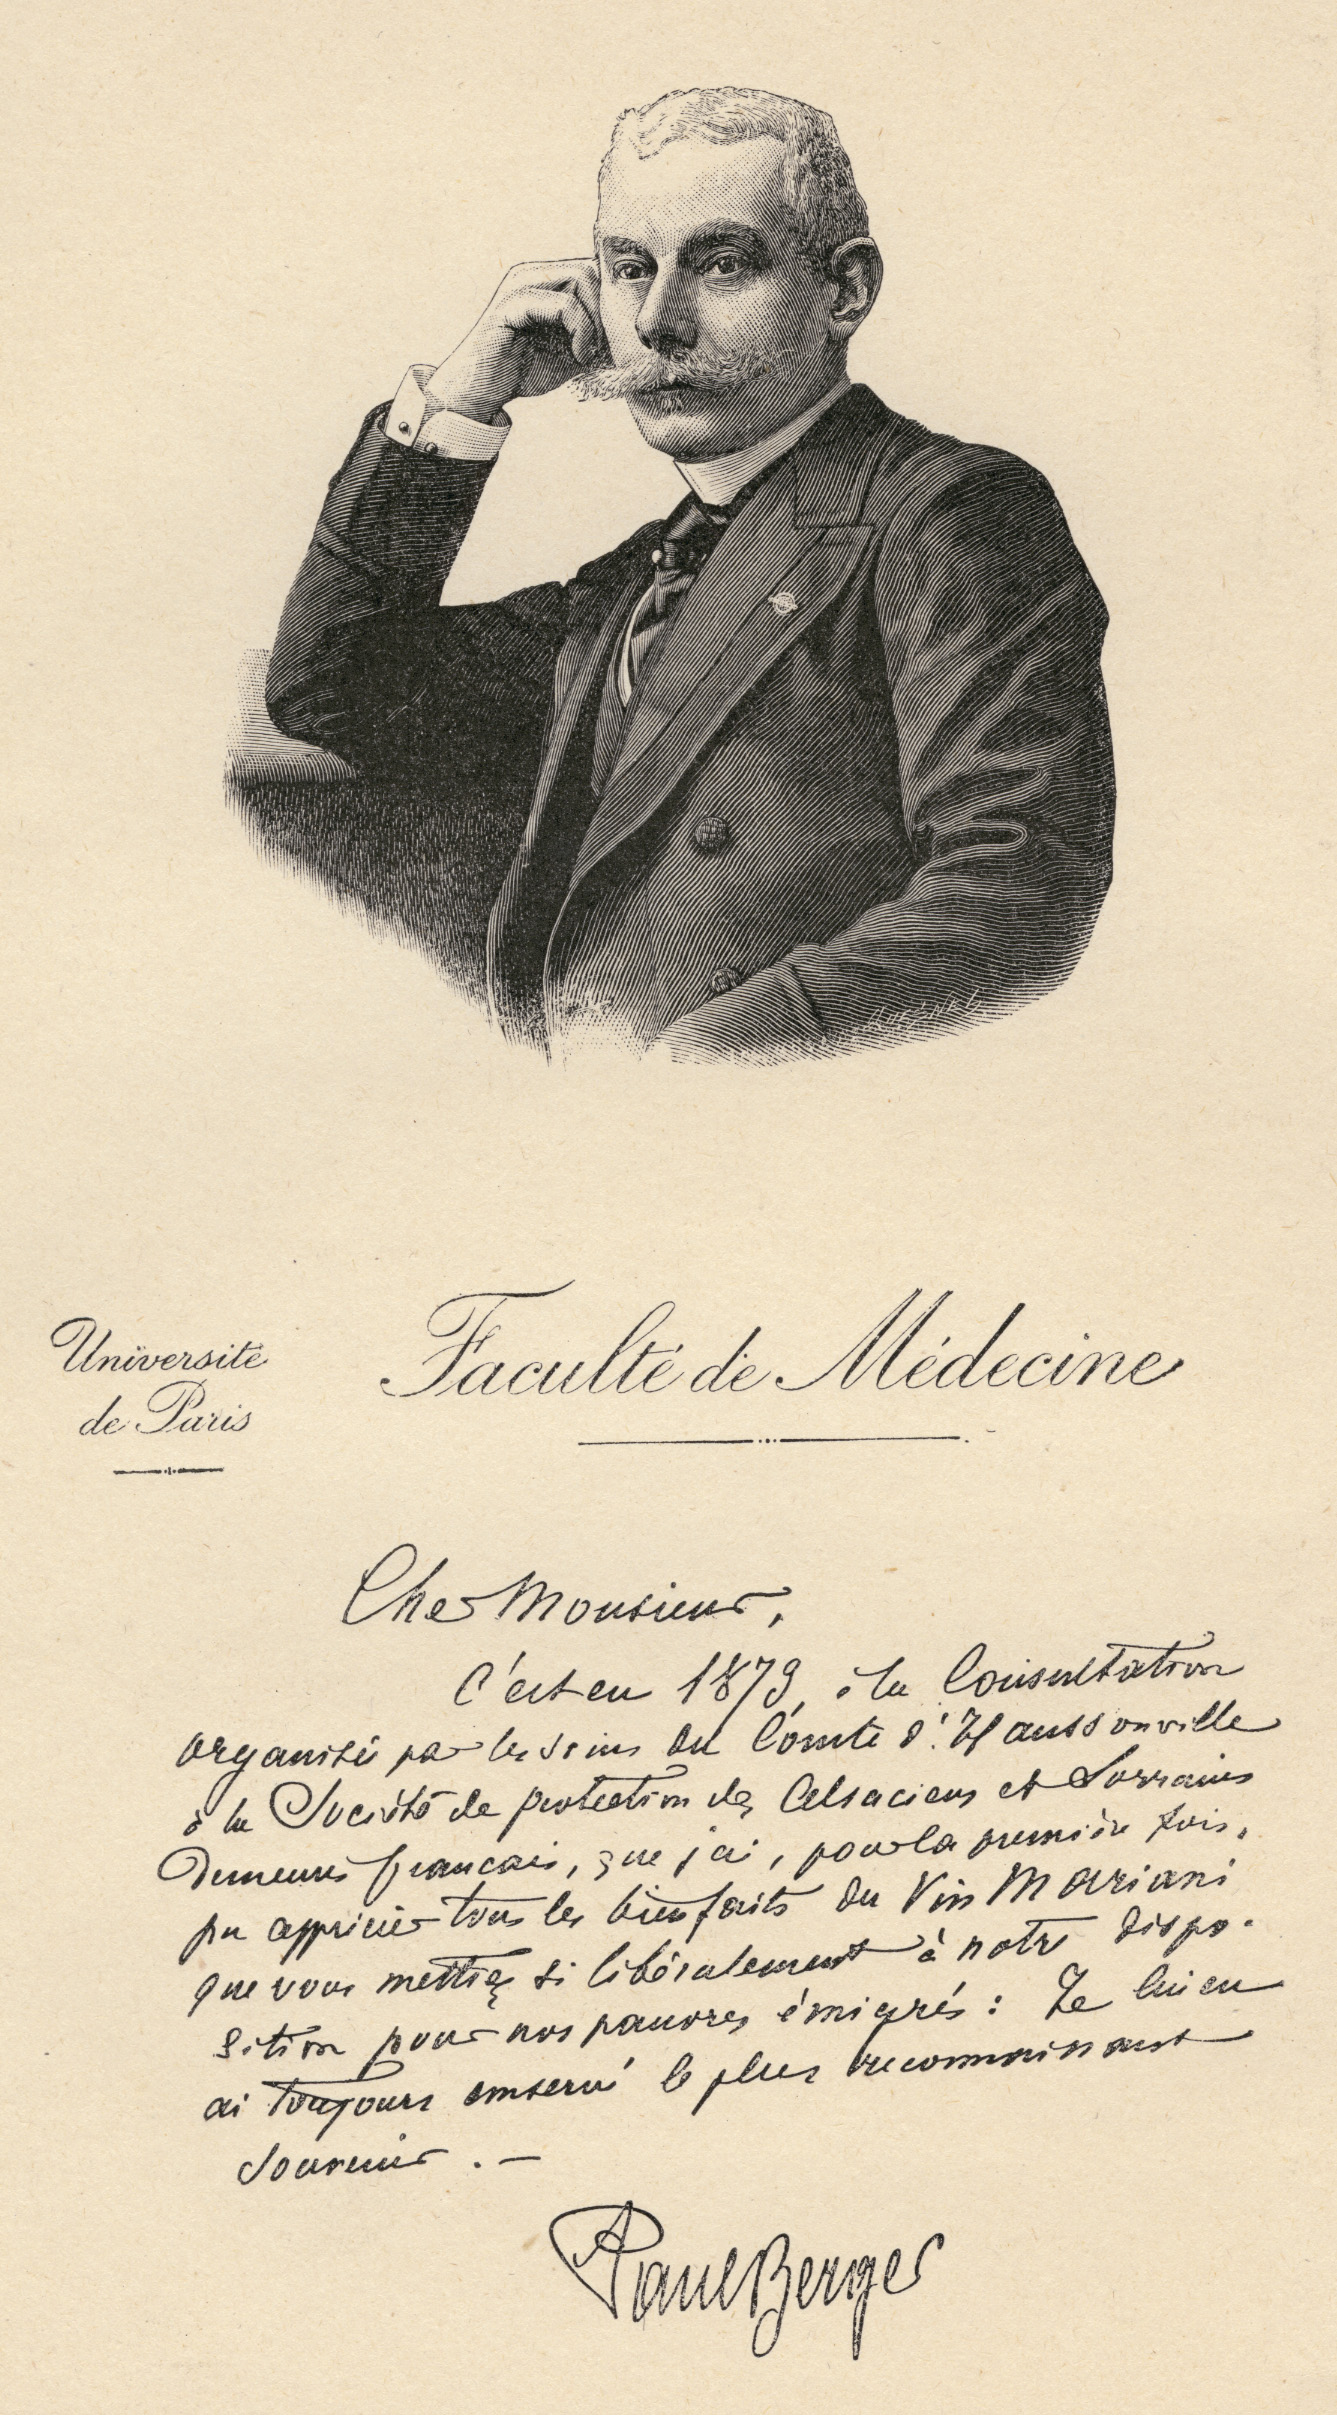 Université
de Paris
Faculté de Médecine
Cher Monsieur,
C'est en 1879, à la Consultation
organisée par les soins du Comte d'Haussonville
à la Société de protection des Alsaciens et Lorrains
demeurés français, que j'ai, pour la première fois,
pu apprécier tous les bienfaits du Vin Mariani
que vous mettiez si libéralement à notre dispo-
sition pour nos pauvres émigrés : Je lui en
ai toujours conservé le plus reconnaissant
souvenir. —
Paul Berger